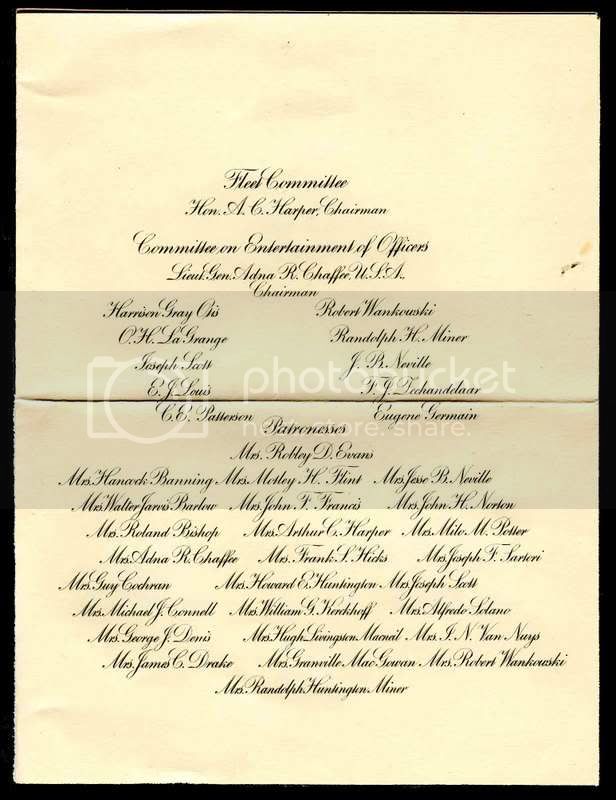 Fleet Committee
Hon. A. C. Harper, Chairman
Committee on Entertainment of Officers
Lieut. Gen. Adna R. Chaffee, U.S.A.,
Chairman
Harrison Gray Otis Robert Wankowski
O. H. La Grange Randolph H. Miner
Joseph Scott J. B. Neville
E. J. Louis F. J. Zeehandelaar
C. E. Patterson Eugene Germain
photobucket
host. store. share.
Patronesses
Mrs. Robley D. Evans
Mrs. Hancock Banning Mrs. Motley H. Flint Mrs. Jesse B. Neville
Mrs. Walter Jarvis Barlow Mrs. John F. Francis Mrs. John H. Norton
Mrs. Roland Bishop Mrs. Arthur C. Harper Mrs. Milo M. Potter
Mrs. Adna R. Chaffee Mrs. Frank S. Hicks Mrs. Joseph F. Sartori
Mrs. Guy Cochran Mrs. Howard E. Huntington Mrs. Joseph Scott
Mrs. Michael J. Connell Mrs. William G. Kerckhoff Mrs. Alfredo Solano
Mrs. George J. Denis Mrs. Hugh Livingston Macneil Mrs. I. N. Van Nuys
Mrs. James C. Drake Mrs. Granville MacGowan Mrs. Robert Wankowski
Mrs. Randolph Huntington Miner